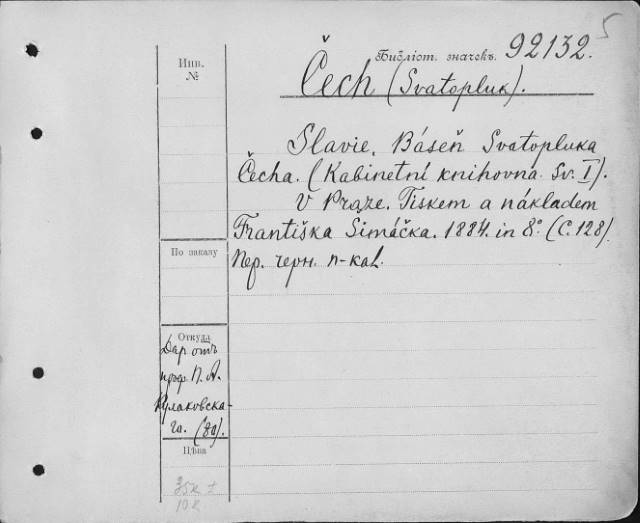 5
Библіот. значекъ. 92132.
Čech (Svatopluk).
Инв.
№
Slavie. Báseň Svatopluka
Čecha. (Kabinetní knihovna. Sv. I).
V Praze. Tiskem a nákladem
Františka Šimáčka. 1884. in 8° (C. 128).
Пер. черн. п-кал.
По заказу
Откуда
Дар отъ
проф. П. А.
Кулаковска-
го. (80).
Цѣна